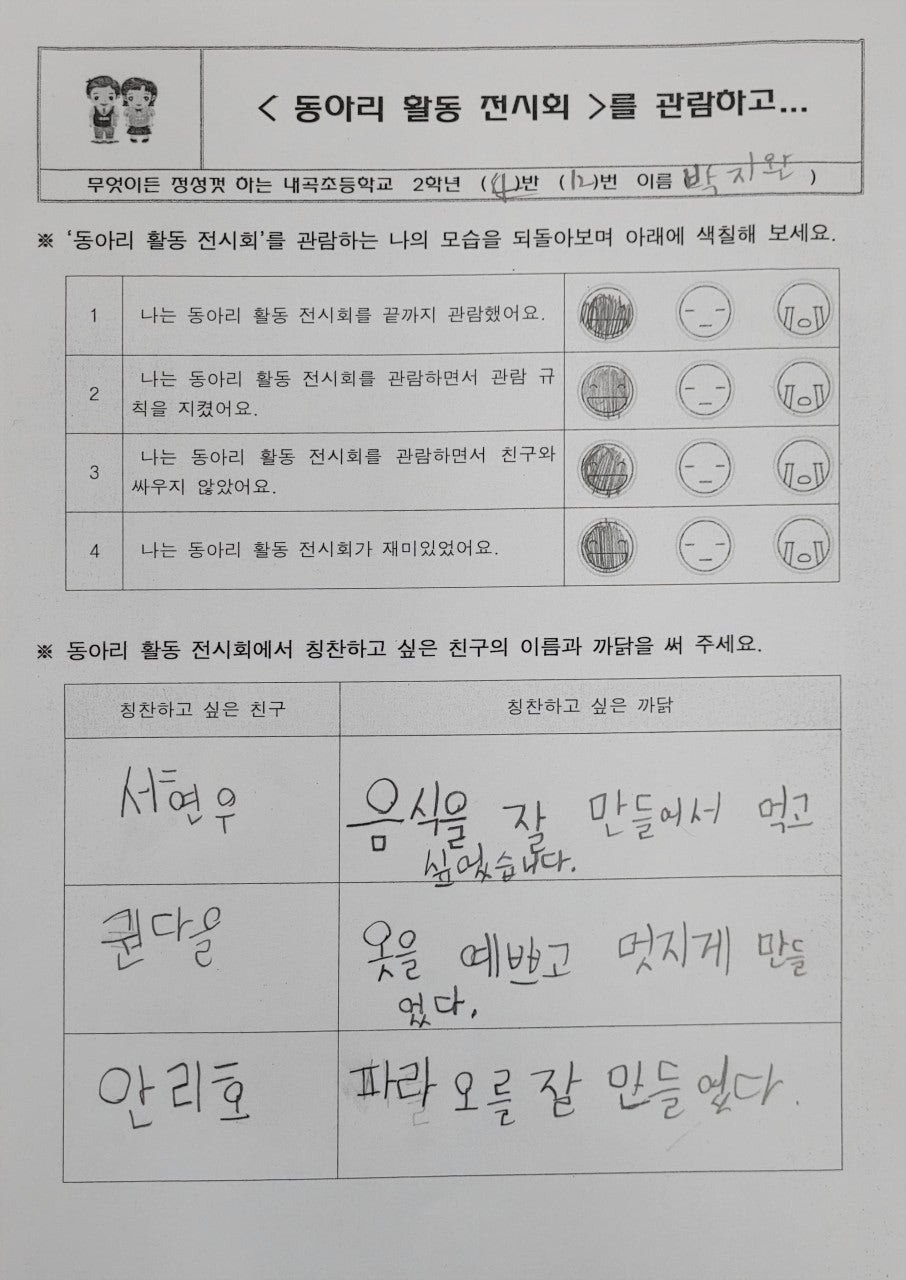 < 동아리 활동 전시회 >를 관람하고...
무엇이든 정성껏 하는 내곡초등학교 2학년 (4)반 (12)번 이름 박지완 )
※ '동아리 활동 전시회'를 관람하는 나의 모습을 되돌아보며 아래에 색칠해 보세요.
1 나는 동아리 활동 전시회를 끝까지 관람했어요.
2 나는 동아리 활동 전시회를 관람하면서 관람 규
칙을 지켰어요.
3 나는 동아리 활동 전시회를 관람하면서 친구와
싸우지 않았어요.
4 나는 동아리 활동 전시회가 재미있었어요.
※ 동아리 활동 전시회에서 칭찬하고 싶은 친구의 이름과 까닭을 써 주세요.
칭찬하고 싶은 친구 칭찬하고 싶은 까닭
서현우 음식을 잘 만들어서 먹고
싶었습니다.
권다올 옷을 예쁘고 멋지게 만들
었다.
안리호 파라오를 잘 만들었다.